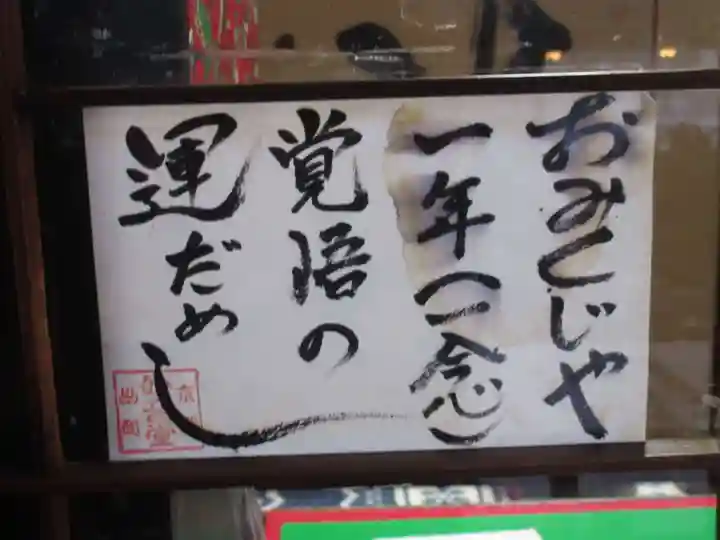 おみくじや
一年(一念)
覚悟の
運だめし